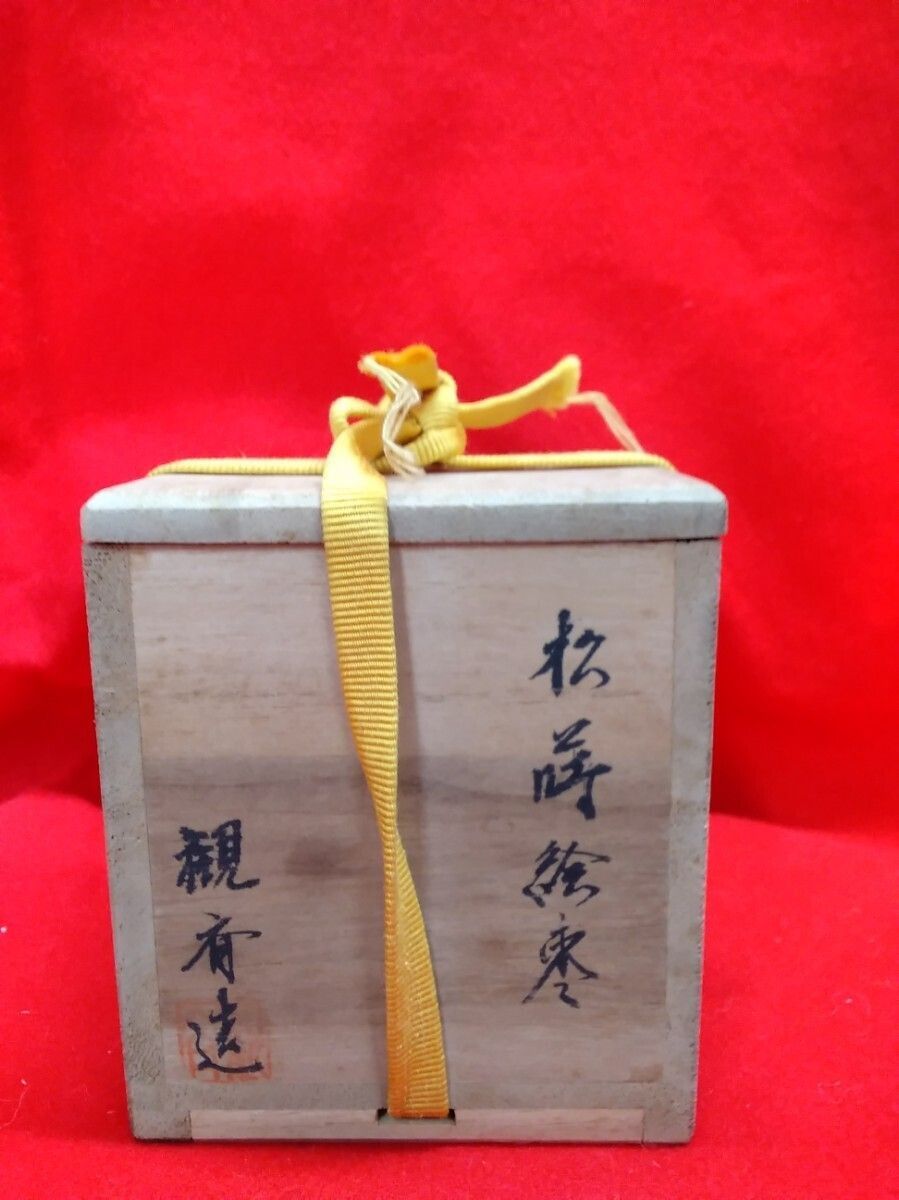 松蒔絵棗
観斉造